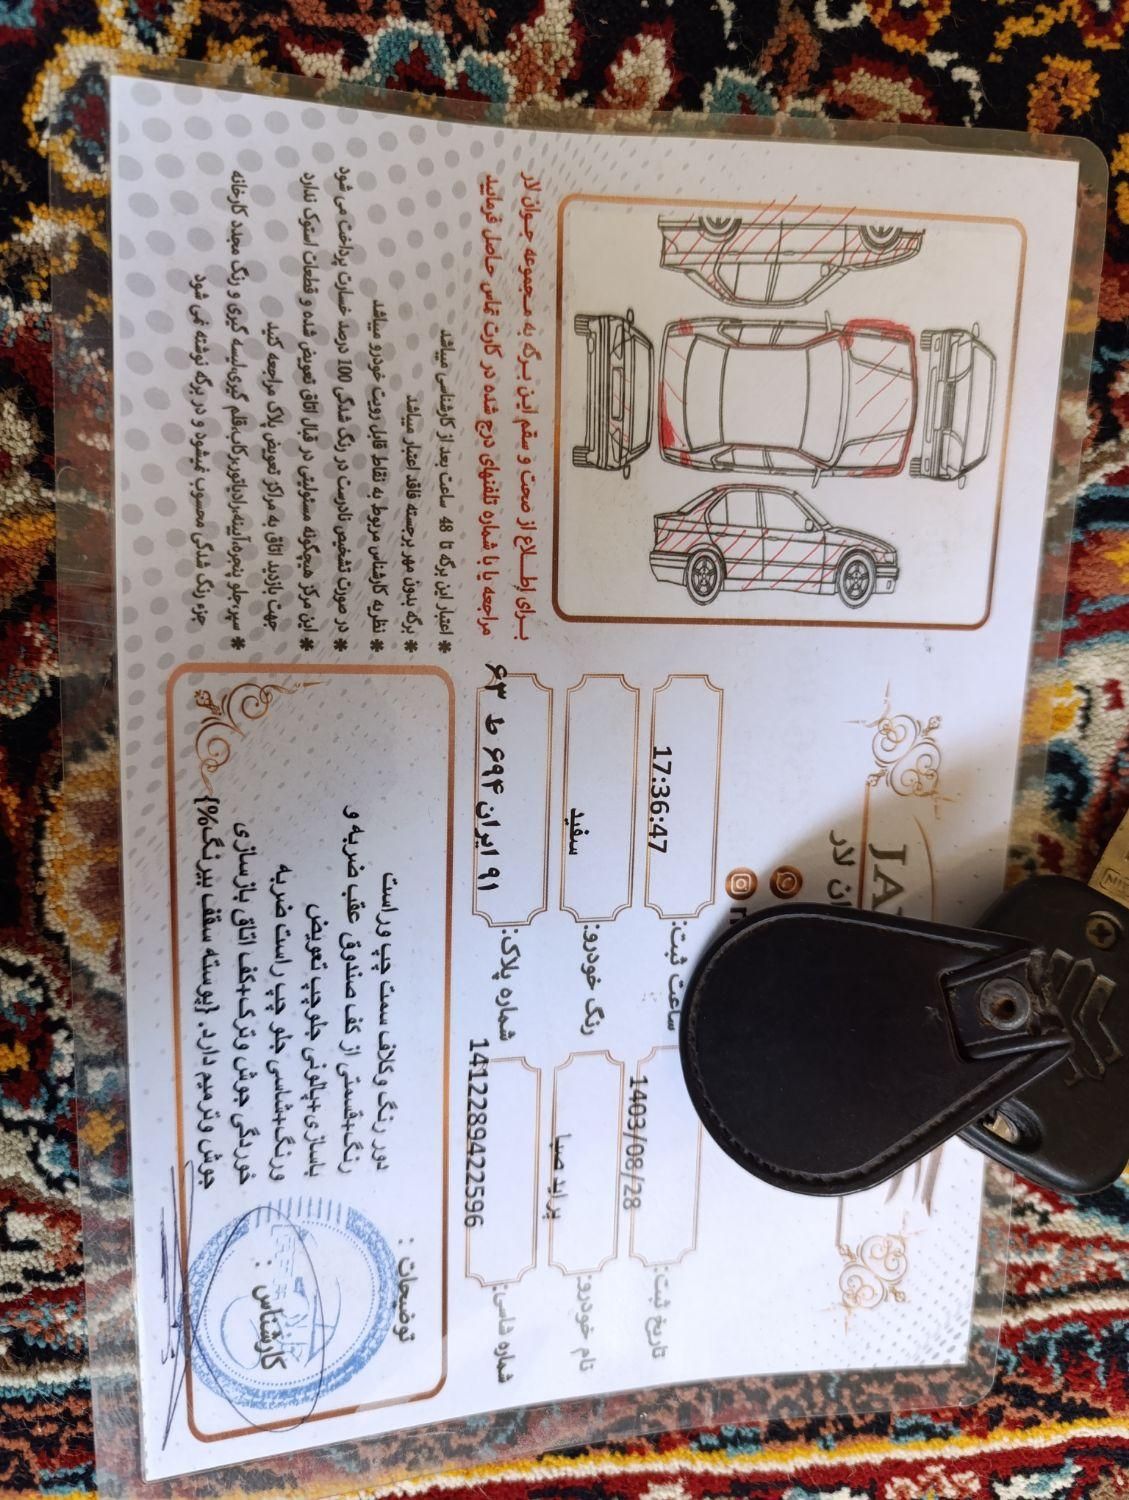 JA
ان لار
تاریخ ثبت: 1403/08/28
ساعت ثبت: 17:36:47
نام خودرو: پراید صبا
رنگ خودرو: سفید
شماره شاسی: 1412289422596
شماره پلاک: ۹۱ ایران ۶۹۴ ط ۶۳
توضیحات :
دور رنگ وکلاف سمت چپ وراست
رنگ+قسمتی از کف صندوق عقب ضربه و
باسازی+پالونی جلو چپ تعویض
ورنگ+شاسی جلو چپ راست ضربه
خوردگی جوش وترک+کف اتاق بازسازی
جوش وترمیم دارد. {پوسته سقف بیرنگ%}
کارشناس :
بـرای اطـلاع از صحت و سقم این بـرگه به مـجموعه جـوان لار
مراجعه یا با شماره تلفنهای درج شده در کارت تماس حـاصل فرمایید
* اعتبار این برگه تا 48 ساعت بعد از کارشناسی میباشد
* برگه بدون مهر برجسته فاقد اعتبار میباشد
* نظریه کارشناس مربوط به نقاط قابل رویت خودرو میباشد
* در صورت تشخیص نادرست در رنگ شدگی 100 درصد خسارت پرداخت می شود
* این مرکز هیچگونه مسئولیتی در قبال اتاق تعویض شده و قطعات استوک ندارد
جهت بازدید اتاق به مراکز تعویض پلاک مراجعه کنید
* سپر،جلو پنجره،آینه،رادیاتور،رکاب،قلم گیری،لیسه گیری و رنگ مجدد کارخانه
جزء رنگ شدگی محسوب نمیشود و در برگه نوشته نمی شود